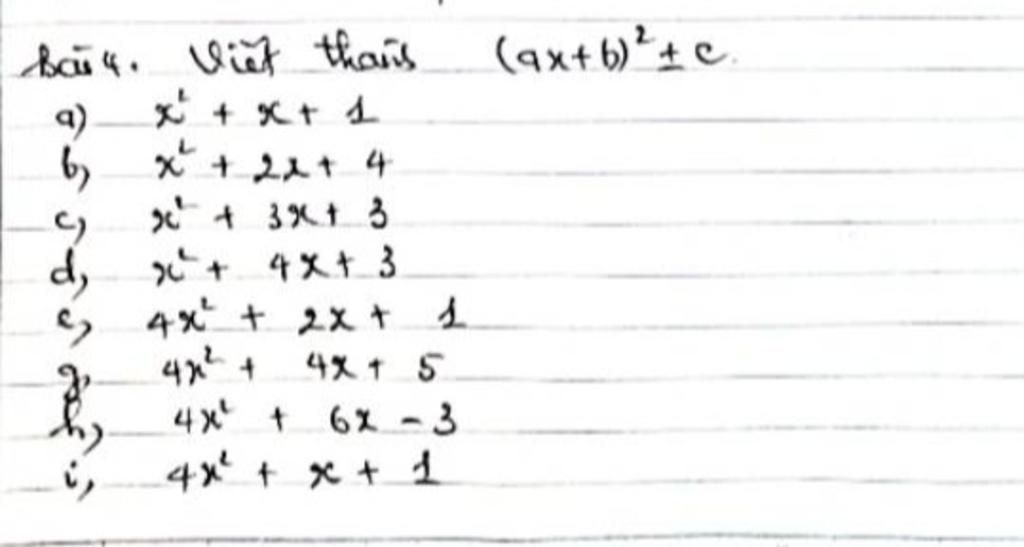 Bài 4. Viết thành (ax+b)² ± c.
a) x² + x + 1
b, x² + 2x + 4
c, x² + 3x + 3
d, x² + 4x + 3
e, 4x² + 2x + 1
g, 4x² + 4x + 5
h, 4x² + 6x - 3
i, 4x² + x + 1